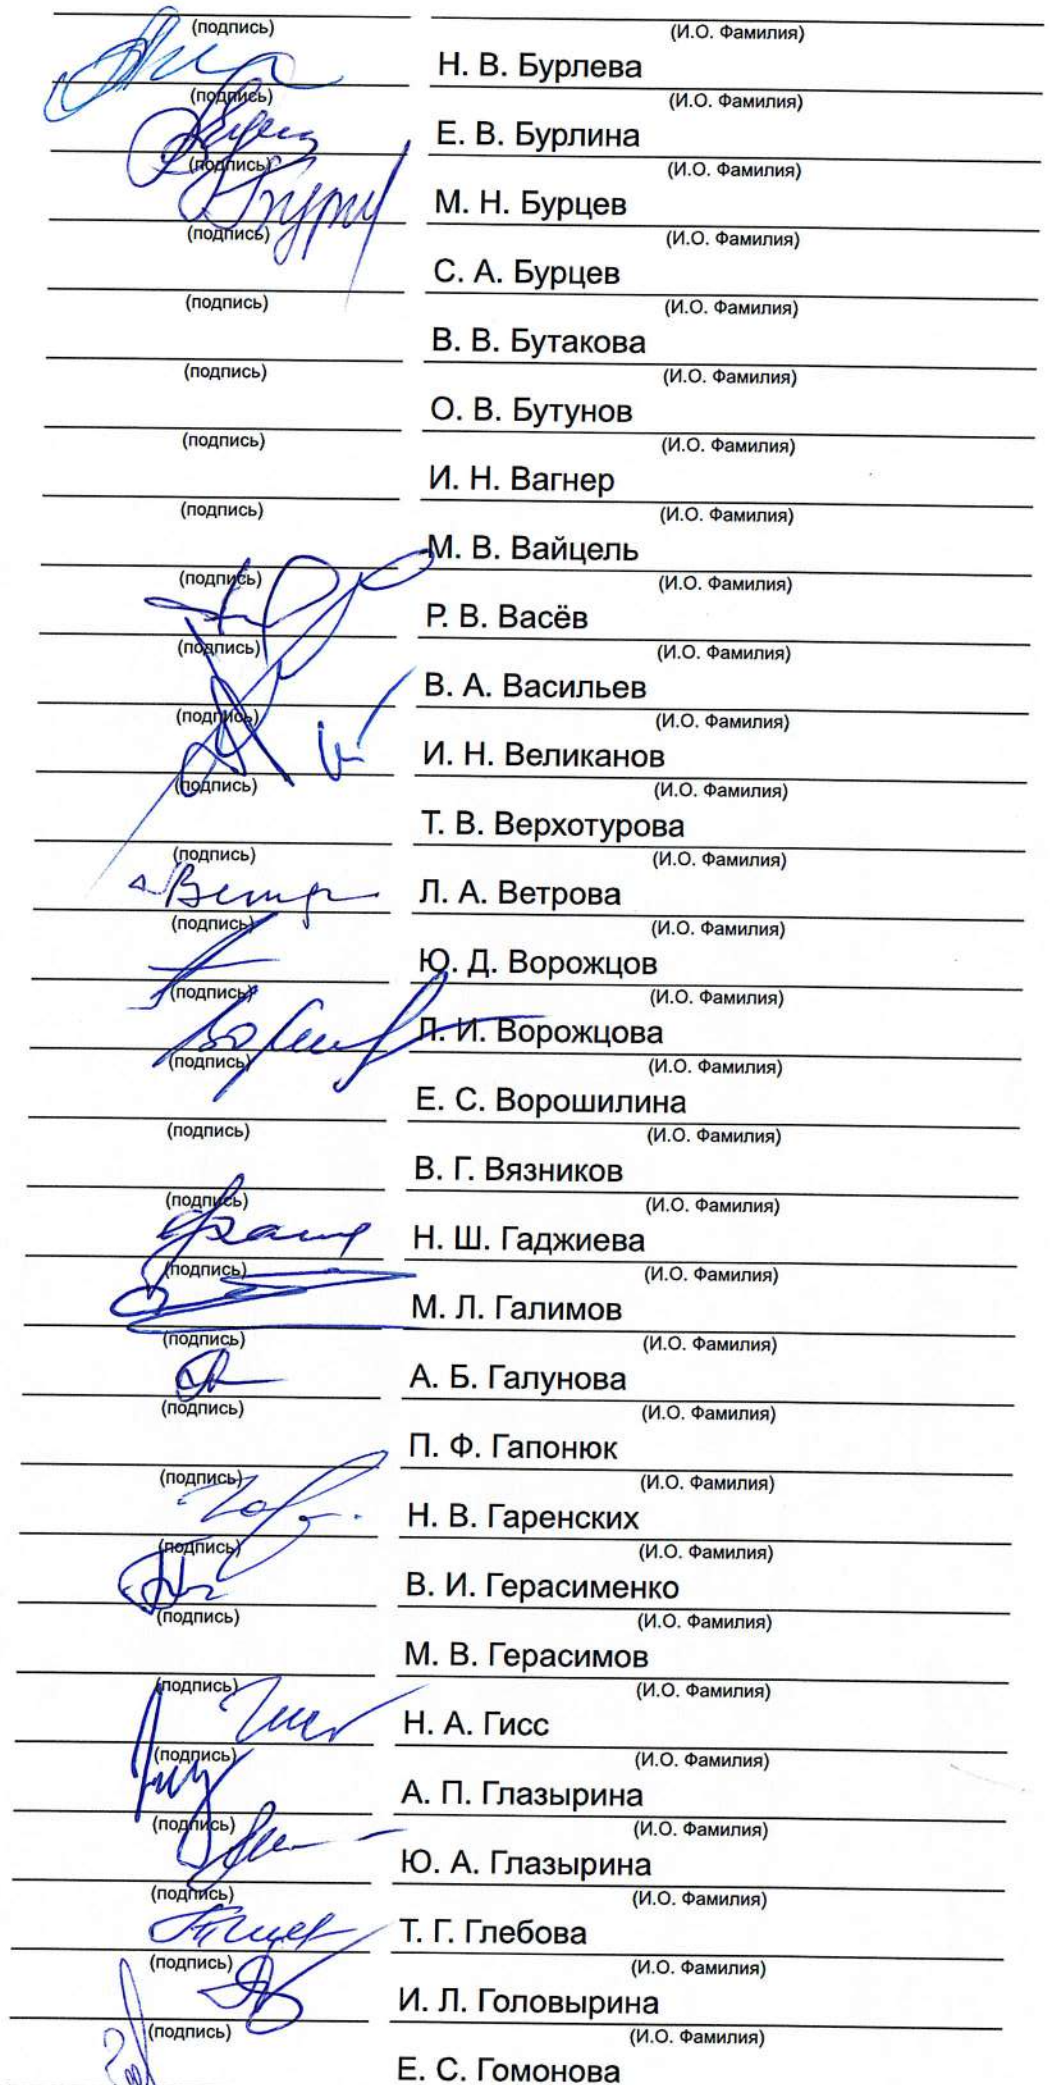 (подпись) (И.О. Фамилия)
Н. В. Бурлева
(подпись) (И.О. Фамилия)
Е. В. Бурлина
(подпись) (И.О. Фамилия)
М. Н. Бурцев
(подпись) (И.О. Фамилия)
С. А. Бурцев
(подпись) (И.О. Фамилия)
В. В. Бутакова
(подпись) (И.О. Фамилия)
О. В. Бутунов
(подпись) (И.О. Фамилия)
И. Н. Вагнер
(подпись) (И.О. Фамилия)
М. В. Вайцель
(подпись) (И.О. Фамилия)
Р. В. Васёв
(подпись) (И.О. Фамилия)
В. А. Васильев
(подпись) (И.О. Фамилия)
И. Н. Великанов
(подпись) (И.О. Фамилия)
Т. В. Верхотурова
(подпись) (И.О. Фамилия)
Л. А. Ветрова
(подпись) (И.О. Фамилия)
Ю. Д. Ворожцов
(подпись) (И.О. Фамилия)
Л. И. Ворожцова
(подпись) (И.О. Фамилия)
Е. С. Ворошилина
(подпись) (И.О. Фамилия)
В. Г. Вязников
(подпись) (И.О. Фамилия)
Н. Ш. Гаджиева
(подпись) (И.О. Фамилия)
М. Л. Галимов
(подпись) (И.О. Фамилия)
А. Б. Галунова
(подпись) (И.О. Фамилия)
П. Ф. Гапонюк
(подпись) (И.О. Фамилия)
Н. В. Гаренских
(подпись) (И.О. Фамилия)
В. И. Герасименко
(подпись) (И.О. Фамилия)
М. В. Герасимов
(подпись) (И.О. Фамилия)
Н. А. Гисс
(подпись) (И.О. Фамилия)
А. П. Глазырина
(подпись) (И.О. Фамилия)
Ю. А. Глазырина
(подпись) (И.О. Фамилия)
Т. Г. Глебова
(подпись) (И.О. Фамилия)
И. Л. Головырина
(подпись) (И.О. Фамилия)
Е. С. Гомонова